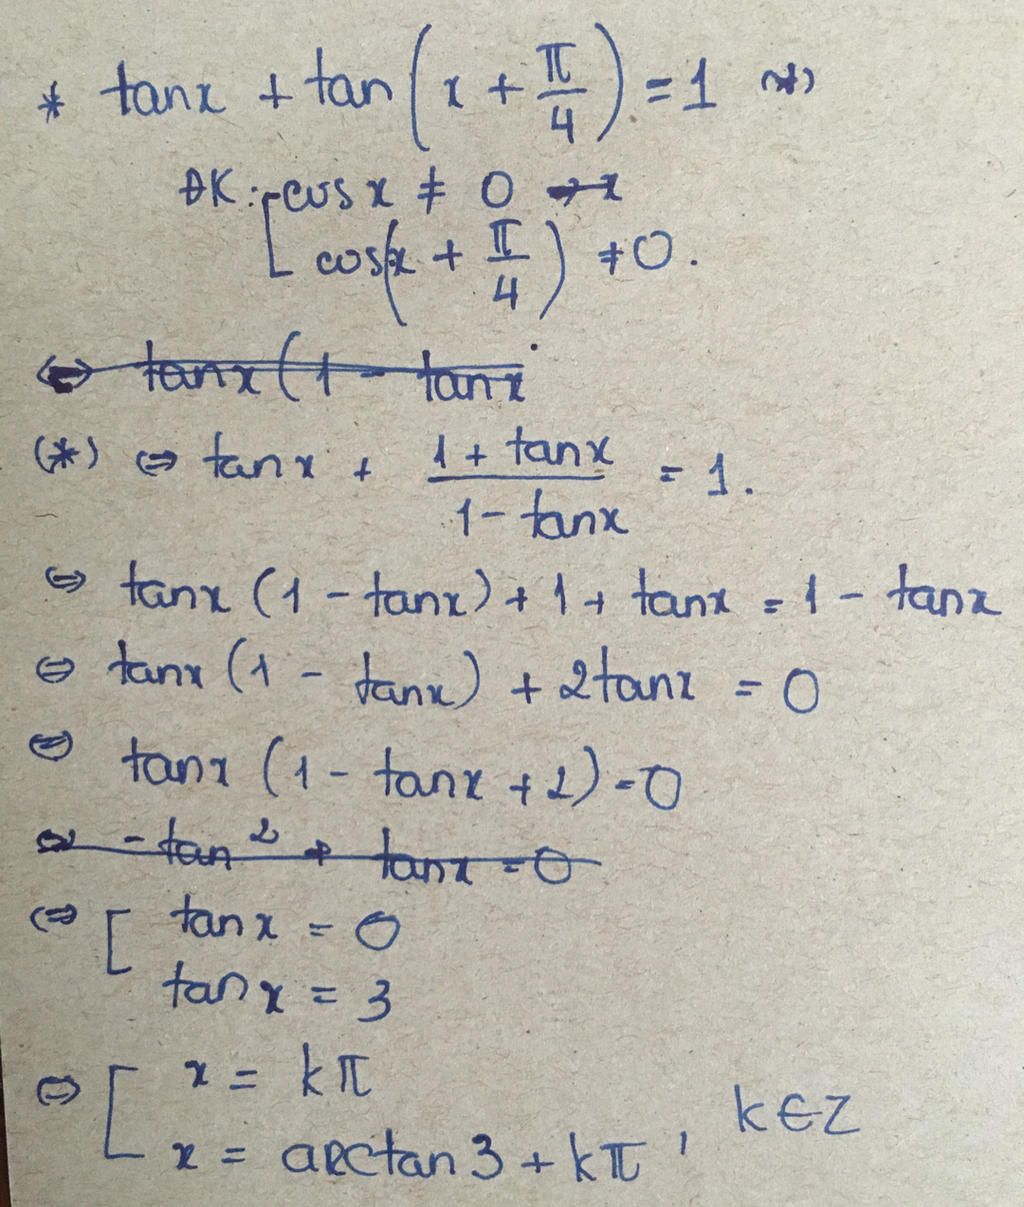 * tanx + tan(x + π/4) = 1 (*)
ĐK: [cosx ≠ 0
cos(x + π/4) ≠ 0.
⇔ tanx(1 - tanx
(*) ⇔ tanx + (1 + tanx)/(1 - tanx) = 1.
⇔ tanx(1 - tanx) + 1 + tanx = 1 - tanx
⇔ tanx(1 - tanx) + 2tanx = 0
⇔ tanx(1 - tanx + 2) = 0
⇔ -tan² + tanx = 0
⇔ [ tanx = 0
tanx = 3
⇔ [ x = kπ
x = arctan3 + kπ, k∈Z